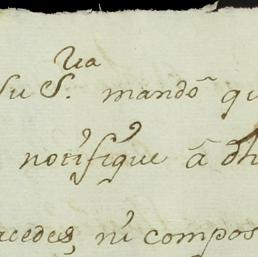 Su S.ª mandó qu
notifique á dh
cedes, ni compos